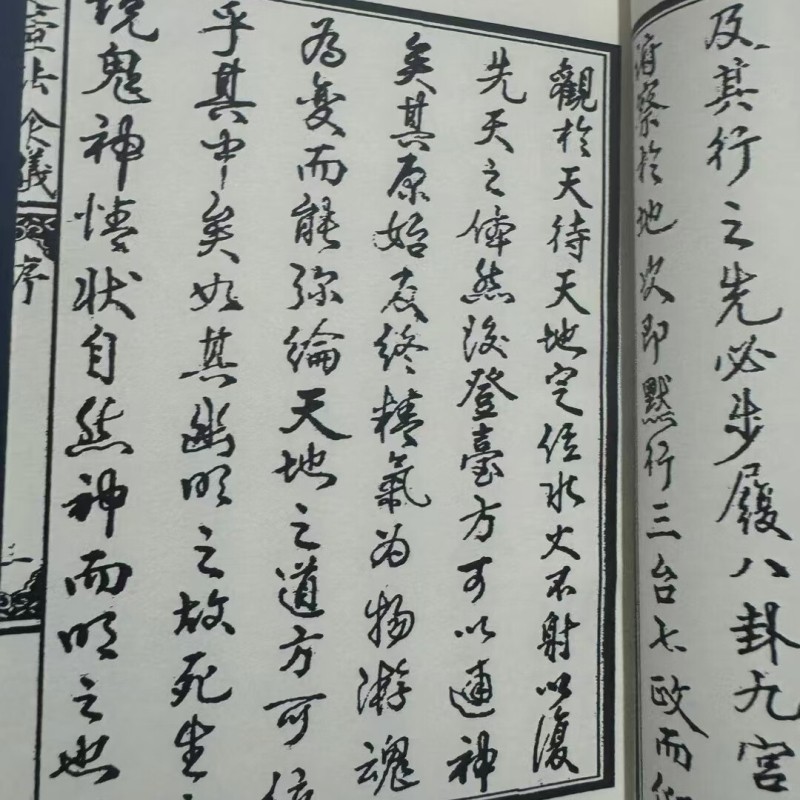 及其行之先必步履八卦九宮
俯察於地次即默行三台七政而仰
觀於天待天地定位水火不射以復
先天之体然後登臺方可以通神
矣其原始反終精氣为物游魂
為變而能弥綸天地之道方可位
乎其中矣如其幽明之故死生之
說鬼神情状自然神而明之也
序
三